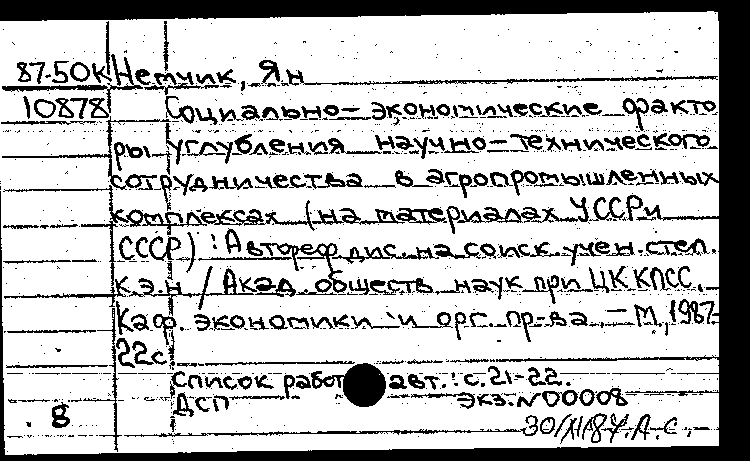 87-50К Немчик, Ян
10878 Социально-экономические факто
ры углубления научно-технического
сотрудничества в агропромышленных
комплексах (на материалах УССР и
СССР) : Автореф дис. на соиск. учен. степ.
к.э.н / Акад. обществ. наук при ЦК КПСС,
Каф. экономики и орг. пр-ва, – М, 1987-
22с
Список работ авт.: с. 21-22.
ДСП экз. N 00008
8 30/XI
А.С.